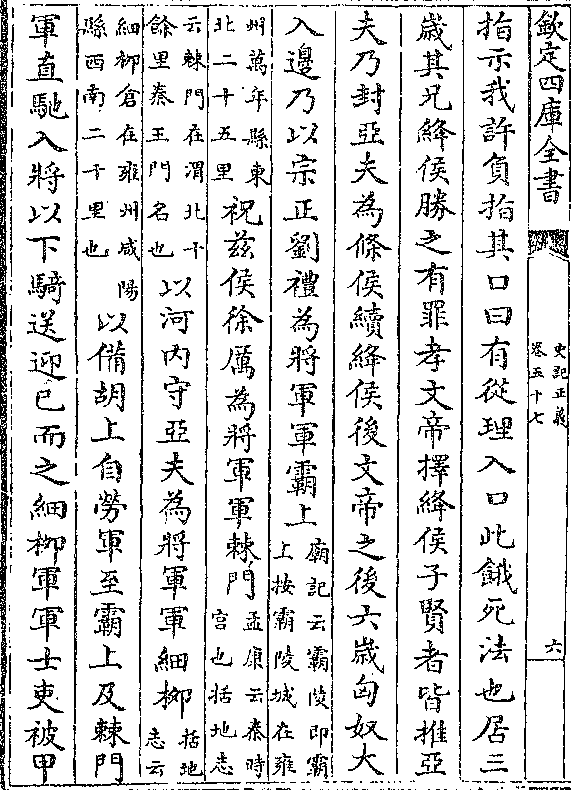 欽定四庫全書
史記正義
卷五十七
六
指示我許負指其口曰有從理入口此餓死法也居三
歲其兄絳侯勝之有罪孝文帝擇絳侯子賢者皆推亞
夫乃封亞夫為條侯續絳侯後文帝之後六歲匈奴大
入邊乃以宗正劉禮為將軍軍霸上
廟記云霸陵即霸
上按霸陵城在雍
州萬年縣東
北二十五里
祝兹侯徐厲為將軍軍棘門
孟康云秦時
宫也括地志
云棘門在渭北十
餘里秦王門名也
以河内守亞夫為將軍軍細柳
括地
志云
細柳倉在雍州咸陽
縣西南二十里也
以備胡上自勞軍至霸上及棘門
軍直馳入將以下騎送迎已而之細柳軍軍士吏被甲